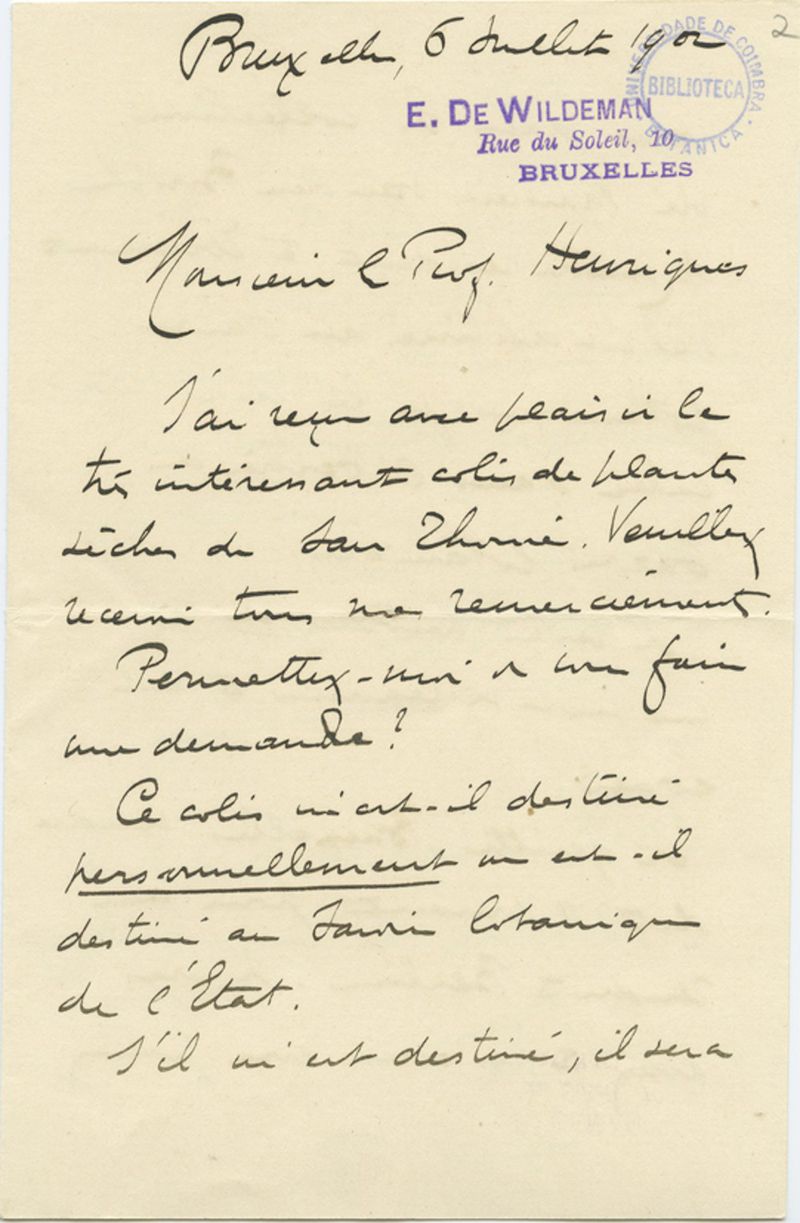 2
Bruxelles, 6 Juillet 1902
UNIVERSIDADE DE COIMBRA
BIBLIOTECA
BOTANICA
E. DE WILDEMAN
Rue du Soleil, 10
BRUXELLES
Monsieur le Prof. Henriques
J'ai reçu avec plaisir le
très intéressant colis de plantes
sèches de San Thomé. Veuillez
recevoir tous mes remerciements.
Permettez-moi de vous faire
une demande?
Ce colis m'est-il destiné
personnellement ou est-il
destiné au Jardin botanique
de l'Etat.
S'il m'est destiné, il sera